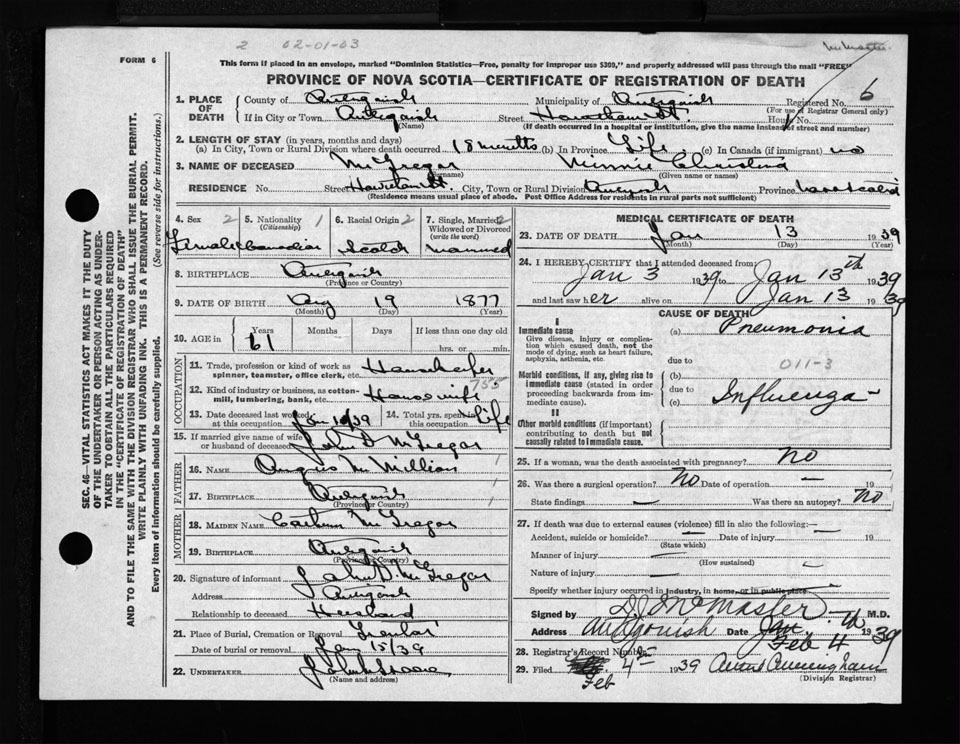 2 02-01-03
McMaster
FORM 6
This form if placed in an envelope, marked "Dominion Statistics—Free, penalty for improper use $300," and properly addressed will pass through the mail "FREE"
PROVINCE OF NOVA SCOTIA—CERTIFICATE OF REGISTRATION OF DEATH
1. PLACE OF DEATH County of Antigonish Municipality of Antigonish Registered No. 6
(For use of Registrar General only)
If in City or Town Antigonish Street Hawthorn St. House No.
(Name) (If death occurred in a hospital or institution, give the name instead of street and number)
2. LENGTH OF STAY (in years, months and days)
(a) In City, Town or Rural Division where death occurred 18 months (b) In Province Life (c) In Canada (if immigrant) no
3. NAME OF DECEASED McGregor Minnie Christina
(Surname) (Given name or names)
RESIDENCE No. Street Hawthorn St. City, Town or Rural Division Antigonish Province Nova Scotia
(Residence means usual place of abode. Post Office Address for residents in rural parts not sufficient)
SEC. 46—VITAL STATISTICS ACT MAKES IT THE DUTY
OF THE UNDERTAKER OR PERSON ACTING AS UNDERTAKER TO OBTAIN ALL THE PARTICULARS REQUIRED
IN THE "CERTIFICATE OF REGISTRATION OF DEATH"
AND TO FILE THE SAME WITH THE DIVISION REGISTRAR WHO SHALL ISSUE THE BURIAL PERMIT.
WRITE PLAINLY WITH UNFADING INK. THIS IS A PERMANENT RECORD.
Every item of information should be carefully supplied. (See reverse side for instructions.)
4. Sex 2 5. Nationality 1 (Citizenship) 6. Racial Origin 2 7. Single, Married 2 Widowed or Divorced (write the word)
Female Canadian Scotch Married
8. BIRTHPLACE Antigonish
(Province or Country)
9. DATE OF BIRTH Aug 19 1877
(Month) (Day) (Year)
10. AGE in Years 61 Months Days If less than one day old
hrs. or min.
OCCUPATION
11. Trade, profession or kind of work as spinner, teamster, office clerk, etc. Housekeeper
12. Kind of industry or business, as cotton-mill, lumbering, bank, etc. Housewife 755
13. Date deceased last worked at this occupation Jan 10/39 14. Total yrs. spent in this occupation Life
15. If married give name of wife or husband of deceased John D McGregor
FATHER
16. NAME Angus McMillan 1
17. BIRTHPLACE Antigonish 1
(Province or Country)
MOTHER
18. MAIDEN NAME McGregor
19. BIRTHPLACE Antigonish
(Province or Country)
20. Signature of informant John D. McGregor
Address Antigonish
Relationship to deceased Husband
21. Place of Burial, Cremation or Removal
Date of burial or removal Jan 15/39
22. UNDERTAKER
(Name and address)
MEDICAL CERTIFICATE OF DEATH
23. DATE OF DEATH Jan 13 1939
(Month) (Day) (Year)
24. I HEREBY CERTIFY that I attended deceased from:
Jan 3 1939 to Jan 13th 1939
and last saw her alive on Jan 13 1939
CAUSE OF DEATH
I
Immediate cause
Give disease, injury or complication which caused death, not the mode of dying, such as heart failure, asphyxia, asthenia, etc.
(a) Pneumonia
due to 011-3
Morbid conditions, if any, giving rise to immediate cause (stated in order proceeding backwards from immediate cause).
(b)
due to
(c) Influenza
II
Other morbid conditions (if important) contributing to death but not causally related to immediate cause.
25. If a woman, was the death associated with pregnancy? No
26. Was there a surgical operation? No Date of operation —
State findings — Was there an autopsy? No
27. If death was due to external causes (violence) fill in also the following:— —
Accident, suicide or homicide? — Date of injury — 19
(State which)
Manner of injury —
(How sustained) —
Nature of injury —
Specify whether injury occurred in industry, in home, or in public place
Signed by McMaster M.D.
Address Antigonish Date Jan. Feb 4 th 1939
28. Registrar's Record Number
29. Filed Feb 4th 1939 Cunningham
(Division Registrar)